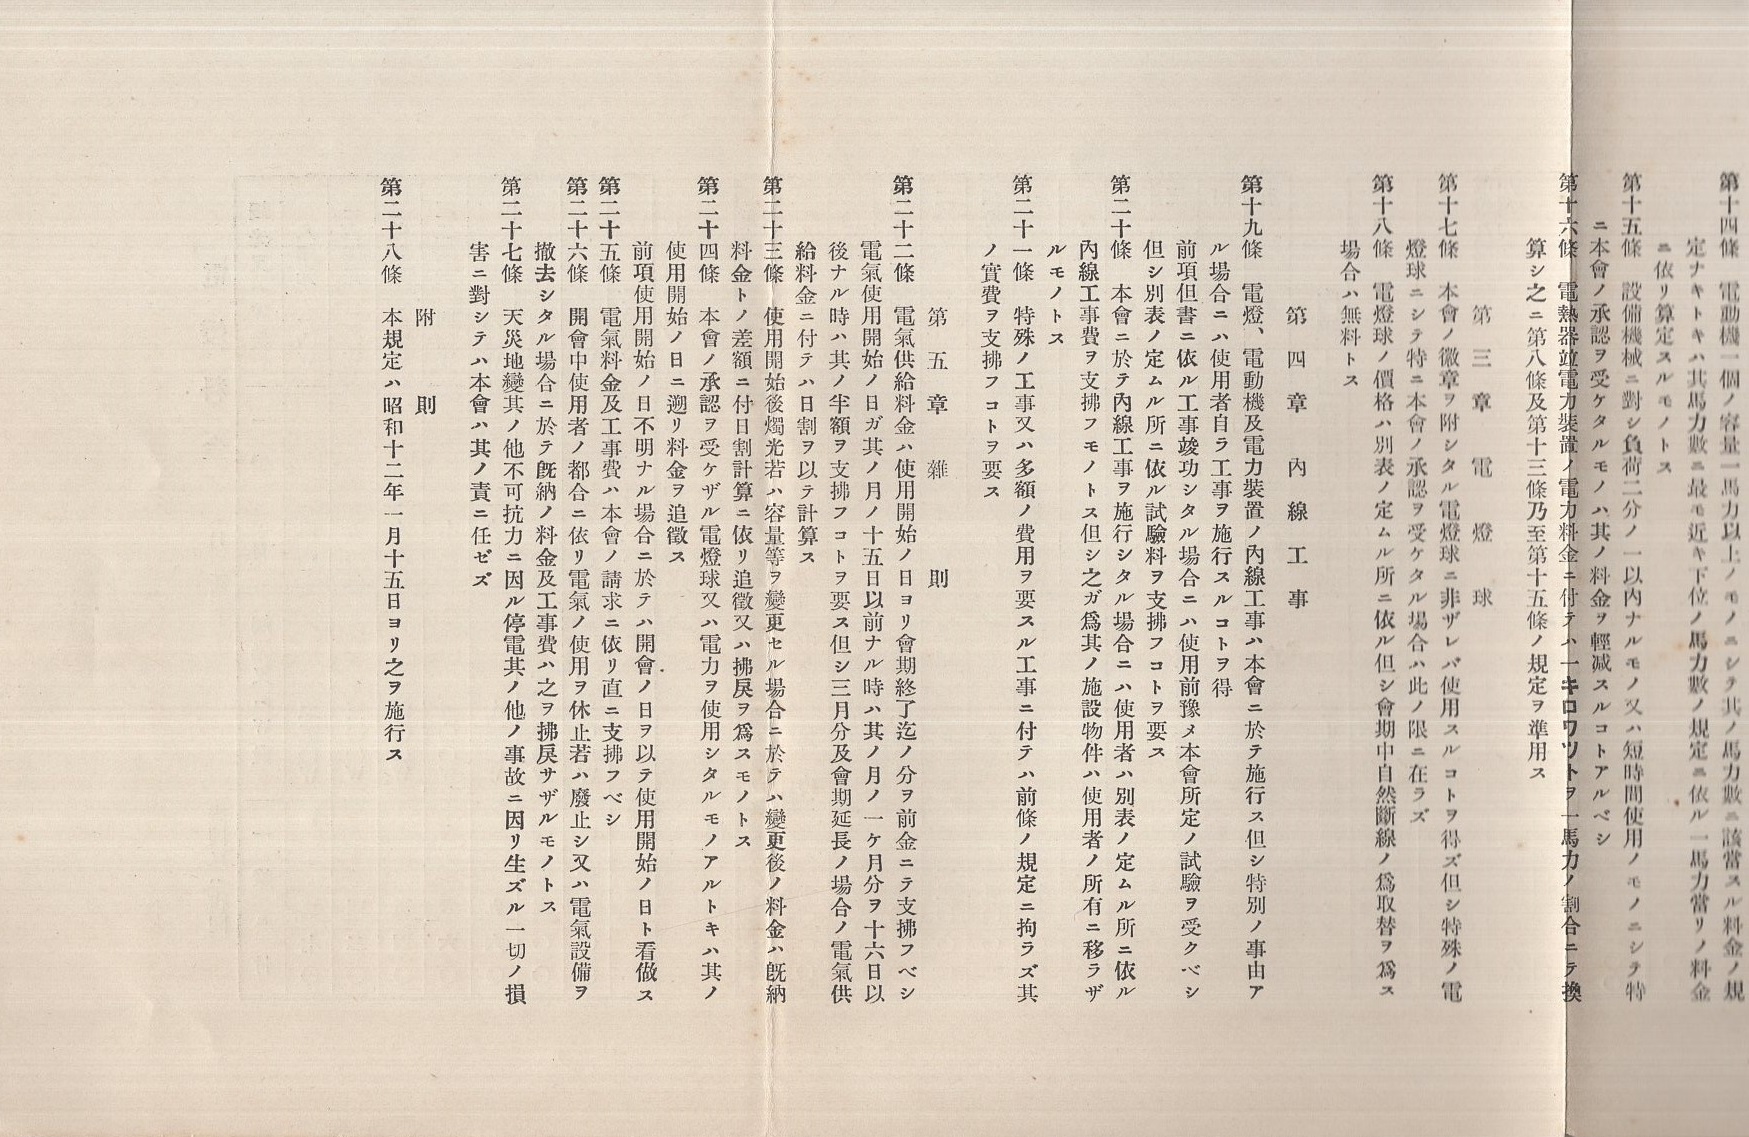 第十四條　電動機一個ノ容量一馬力以上ノモノニシテ其ノ馬力數ニ該當スル料金ノ規
定ナキトキハ其馬力數ニ最モ近キ下位ノ馬力數ノ規定ニ依ル一馬力當リノ料金
ニ依リ算定スルモノトス
第十五條　設備機械ニ對シ負荷二分ノ一以内ナルモノ又ハ短時間使用ノモノニシテ特
ニ本會ノ承認ヲ受ケタルモノハ其ノ料金ヲ輕減スルコトアルベシ
第十六條　電熱器竝電力裝置ノ電力料金ニ付テハ一キロワツトヲ一馬力ノ割合ニテ換
算シ之ニ第八條及第十三條乃至第十五條ノ規定ヲ準用ス
第三章　電燈球
第十七條　本會ノ徽章ヲ附シタル電燈球ニ非ザレバ使用スルコトヲ得ズ但シ特殊ノ電
燈球ニシテ特ニ本會ノ承認ヲ受ケタル場合ハ此ノ限ニ在ラズ
第十八條　電燈球ノ價格ハ別表ノ定ムル所ニ依ル但シ會期中自然斷線ノ爲取替ヲ爲ス
場合ハ無料トス
第四章　內線工事
第十九條　電燈、電動機及電力裝置ノ內線工事ハ本會ニ於テ施行ス但シ特別ノ事由ア
ル場合ニハ使用者自ラ工事ヲ施行スルコトヲ得
前項但書ニ依ル工事竣功シタル場合ニハ使用前豫メ本會所定ノ試驗ヲ受クベシ
但シ別表ノ定ムル所ニ依ル試驗料ヲ支拂フコトヲ要ス
第二十條　本會ニ於テ內線工事ヲ施行シタル場合ニハ使用者ハ別表ノ定ムル所ニ依ル
內線工事費ヲ支拂フモノトス但シ之ガ爲其ノ施設物件ハ使用者ノ所有ニ移ラザ
ルモノトス
第二十一條　特殊ノ工事又ハ多額ノ費用ヲ要スル工事ニ付テハ前條ノ規定ニ拘ラズ其
ノ實費ヲ支拂フコトヲ要ス
第五章　雜則
第二十二條　電氣供給料金ハ使用開始ノ日ヨリ會期終了迄ノ分ヲ前金ニテ支拂フベシ
電氣使用開始ノ日ガ其ノ月ノ十五日以前ナル時ハ其ノ月ノ一ケ月分ヲ十六日以
後ナル時ハ其ノ半額ヲ支拂フコトヲ要ス但シ三月分及會期延長ノ場合ノ電氣供
給料金ニ付テハ日割ヲ以テ計算ス
第二十三條　使用開始後燭光若ハ容量等ヲ變更セル場合ニ於テハ變更後ノ料金ハ旣納
料金トノ差額ニ付日割計算ニ依リ追徵又ハ拂戾ヲ爲スモノトス
第二十四條　本會ノ承認ヲ受ケザル電燈球又ハ電力ヲ使用シタルモノアルトキハ其ノ
使用開始ノ日ニ遡リ料金ヲ追徵ス
前項使用開始ノ日不明ナル場合ニ於テハ開會ノ日ヲ以テ使用開始ノ日ト看做ス
第二十五條　電氣料金及工事費ハ本會ノ請求ニ依リ直ニ支拂フベシ
第二十六條　開會中使用者ノ都合ニ依リ電氣ノ使用ヲ休止若ハ廢止シ又ハ電氣設備ヲ
撤去シタル場合ニ於テ旣納ノ料金及工事費ハ之ヲ拂戾サザルモノトス
第二十七條　天災地變其ノ他不可抗力ニ因ル停電其ノ他ノ事故ニ因リ生ズル一切ノ損
害ニ對シテハ本會ハ其ノ責ニ任ゼズ
附則
第二十八條　本規定ハ昭和十二年一月十五日ヨリ之ヲ施行ス